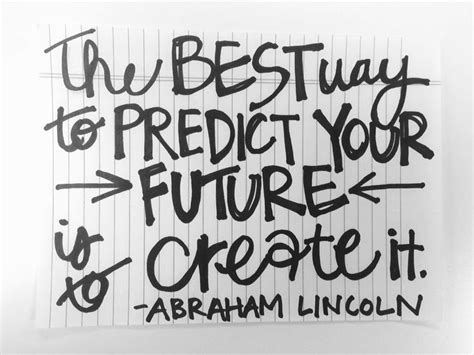 The BEST way
to PREDICT YOUR
→ FUTURE ←
is to create it.
-ABRAHAM LINCOLN